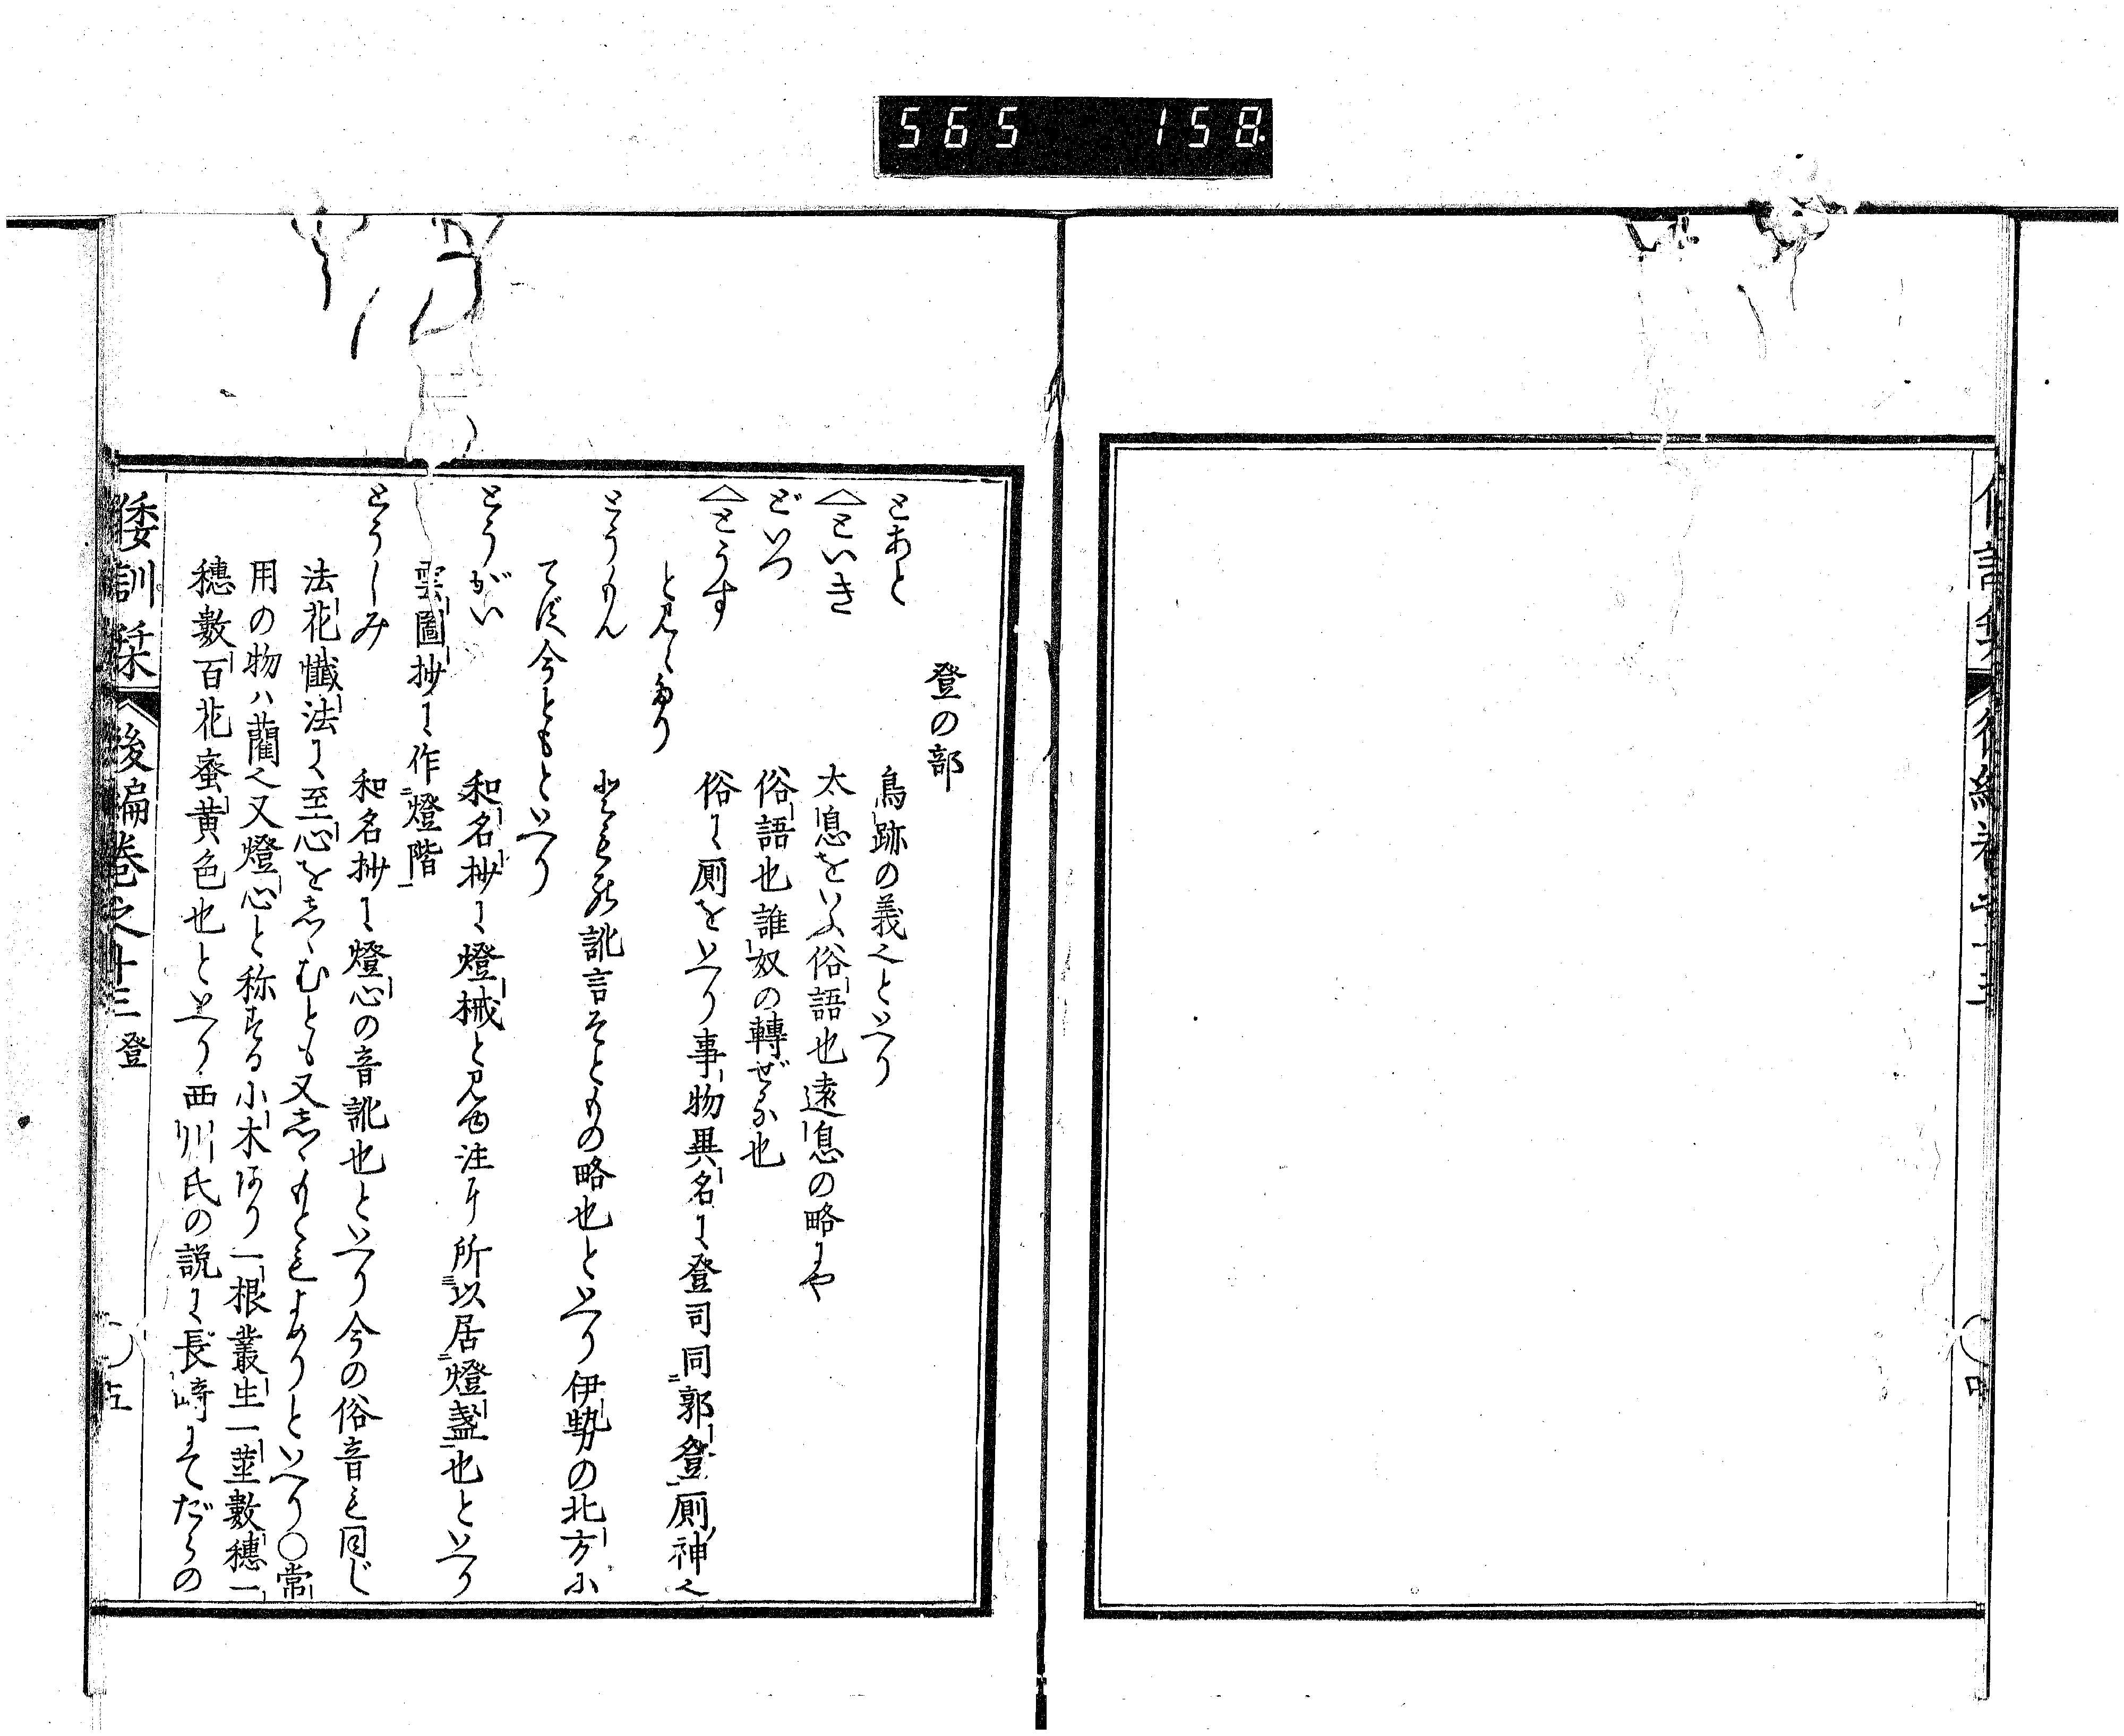 565 158
登の部
とあと 鳥跡の義也といへり
〈といき 太息をいふ俗語也遠息の略にや
どいつ 俗語也誰奴の轉ぜる也
〈とうす 俗に厠をいへり事物異名に登司同郭登厠神也
と見えたり
とうもん 訛言そともの略也といへり伊勢の北方に
てば今ともといへり
とうがい 和名抄に燈械と見ゆ注に所以居燈盞也といへり
雲圖抄に作燈階
とうしみ 和名抄に燈心の音訛也といへり今の俗音も同じ
法花懺法に至心をしゝむとも又しゝもともよめりといへり〇常
用の物ハ藺也又燈心と称する小木あり一根叢生一莖數穗一
穗數百花蜜黄色也といへり西川氏の説に長崎にてだらの
倭訓栞 後編巻之十三 登 〇五